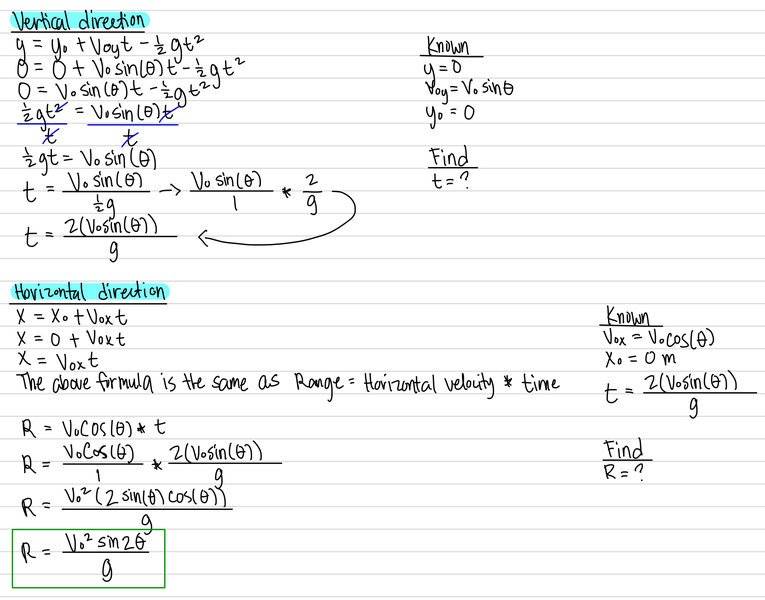 Vertical direction
y = y₀ + V₀yt - ½gt²
0 = 0 + V₀ sin(θ)t - ½gt²
0 = V₀ sin(θ)t - ½gt²
½gt²/t = V₀ sin(θ)t/t
½gt = V₀ sin(θ)
t = V₀ sin(θ)/½g → V₀ sin(θ)/1 * 2/g
t = 2(V₀sin(θ))/g
Known
y = 0
V₀y = V₀ sinθ
y₀ = 0
Find
t = ?
Horizontal direction
X = X₀ + V₀xt
X = 0 + V₀xt
X = V₀xt
The above formula is the same as Range = Horizontal velocity * time
R = V₀Cos(θ) * t
R = V₀Cos(θ)/1 * 2(V₀sin(θ))/g
R = V₀²(2 sin(θ) cos(θ))/g
R = V₀² sin2θ/g
Known
V₀x = V₀cos(θ)
X₀ = 0 m
t = 2(V₀sin(θ))/g
Find
R = ?